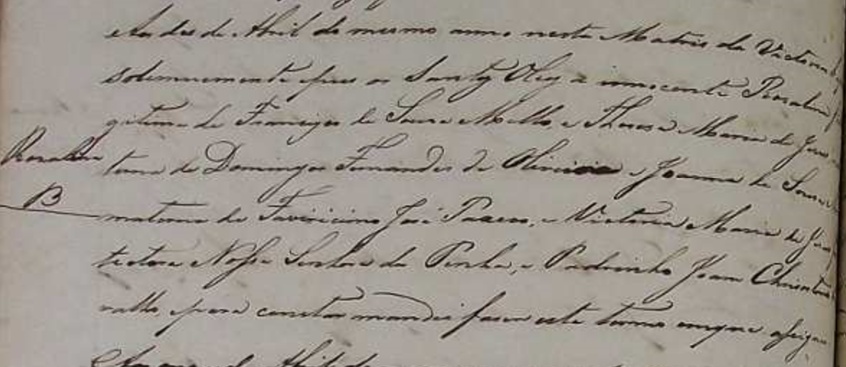 de Abril do mesmo anno nesta Matriz da Victoria
Solemnemente puz os Santos Oleos a innocente Rosalina
gitima de Francisco de Souza Mello, e Theresa Maria de Jesus
Rosalina
terna de Domingos Fernandes de Oliveira e Joanna de Souza
B
materna de José e Victoria Maria de Jesus
tectora Nossa Senhora da Penha, e Padrinho João
vallo, e para constar mandei fazer este termo em que assigno
de Abril de